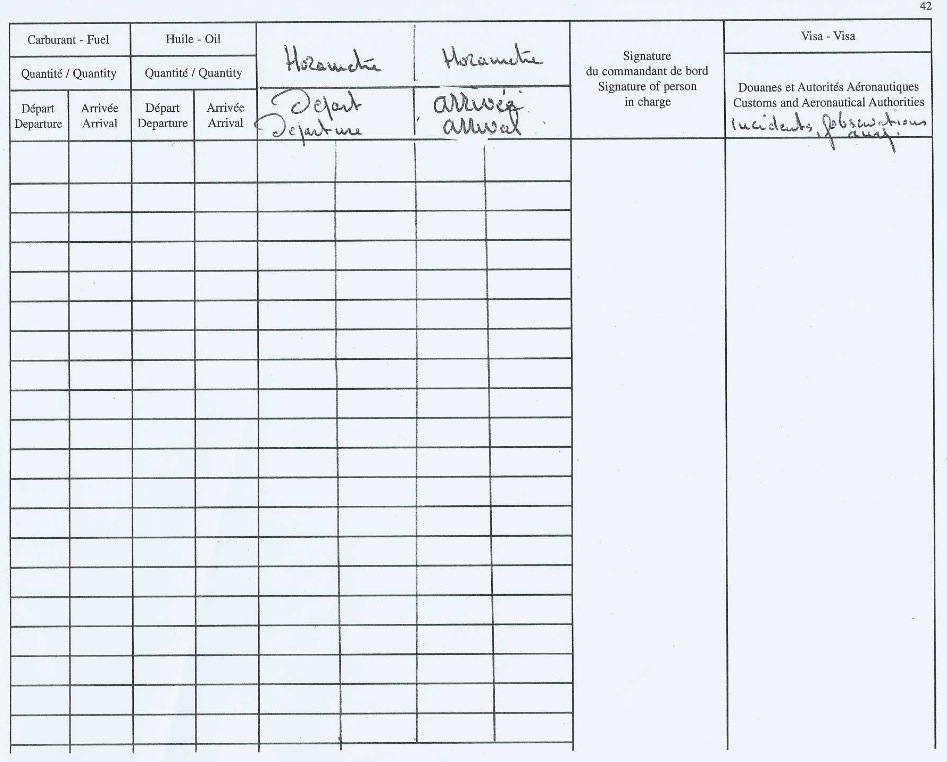 42
Carburant - Fuel
Quantité / Quantity
Départ
Departure
Arrivée
Arrival
Huile - Oil
Quantité / Quantity
Départ
Departure
Arrivée
Arrival
Horamètre
Départ
Departure
Horamètre
arrivée
arrival
Signature
du commandant de bord
Signature of person
in charge
Visa - Visa
Douanes et Autorités Aéronautiques
Customs and Aeronautical Authorities
Incidents, observations